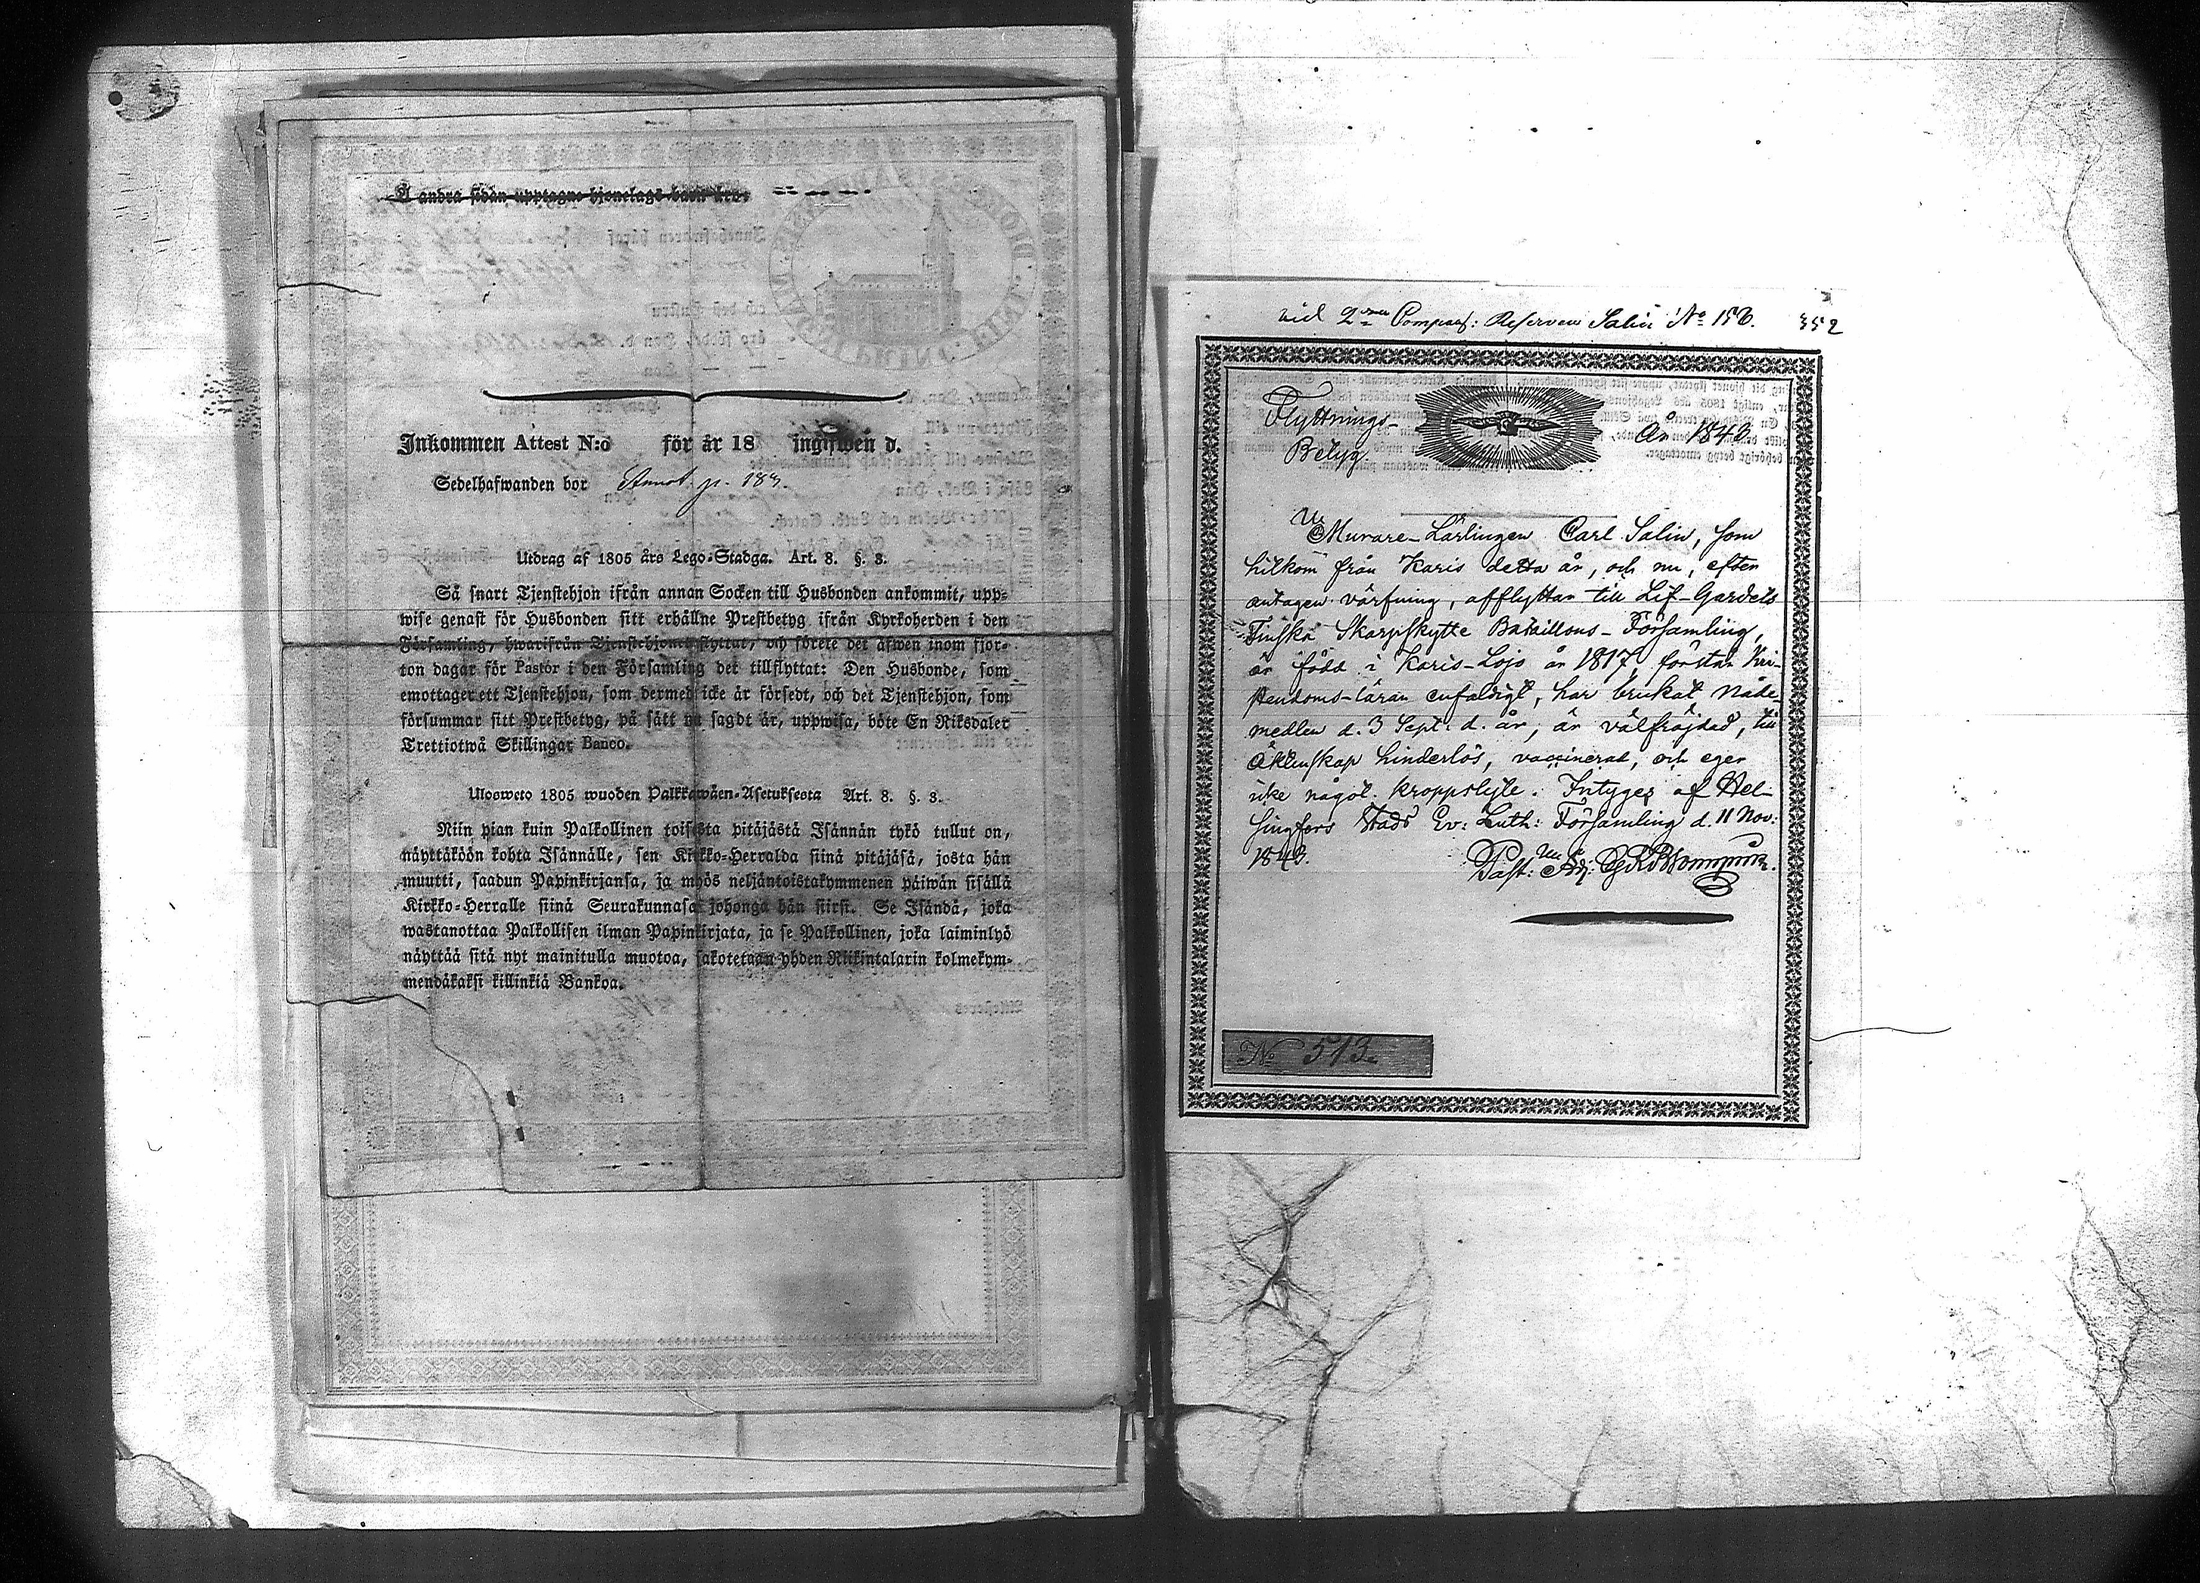 Å andra sidan upptagne hjonelags barn äro:
Inkommen Attest N:o för år 18 ingifwen d.
Sedelhafwanden bor Annot. p. 183.
Utdrag af 1805 års Lego-Stadga. Art. 8. §. 3.
Så snart Tjenstehjon ifrån annan Socken till Husbonden ankommit, upp-
wise genast för Husbonden sitt erhållne Prestbetyg ifrån Kyrkoherden i den
Församling, hwarifrån Tjenstehjonet flyttat, och förete det äfwen inom fjor-
ton dagar för Pastor i den Församling det tillflyttat: Den Husbonde, som
emottager ett Tjenstehjon, som dermed icke är försedt, och det Tjenstehjon, som
försummar sitt Prestbetyg, på sätt nu sagdt är, uppwisa, böte En Riksdaler
Trettiotwå Skillingar Banco.
Ulosweto 1805 wuoden Palkkawäen-Asetuksesta Art. 8. §. 3.
Niin pian kuin Palkollinen toisesta pitäjästä Isännän tykö tullut on,
näyttäköön kohta Isännälle, sen Kirkko-Herralda siinä pitäjäsä, josta hän
muutti, saadun Papinkirjansa, ja myös neljäntoistakymmenen päiwän sisällä
Kirkko-Herralle siinä Seurakunnasa johonga hän siirsi. Se Isändä, joka
wastanottaa Palkollisen ilman Papinkirjata, ja se Palkollinen, joka laiminlyö
näyttää sitä nyt mainitulla muotoa, sakotetaan yhden Riikintalarin kolmekym-
mendäkaksi killinkiä Bankoa.
vid 2dra Compani: Reserven Salin No 156. 352
Flyttnings-
Betyg. År 1843.
Murare-Lärlingen Carl Salin, som
hitkom från Karis detta år, och nu, efter
antagen värfning, afflyttar till Lif-Gardets
Finska Skarpskytte Bataillons-Församling,
är född i Karis-Lojo år 1817, förstår Kri-
stendoms-läran enfaldigt, har brukat Nåde
medlen d. 3 Sept. d. år, är välfräjdad, till
Äktenskap hinderlös, vaccinerad, och eger
icke något kroppslyte. Intygas af Hel-
singfors Stads Ev: Luth: Församling d. 11 Nov:
1843.
Past: Adj:
No 513.